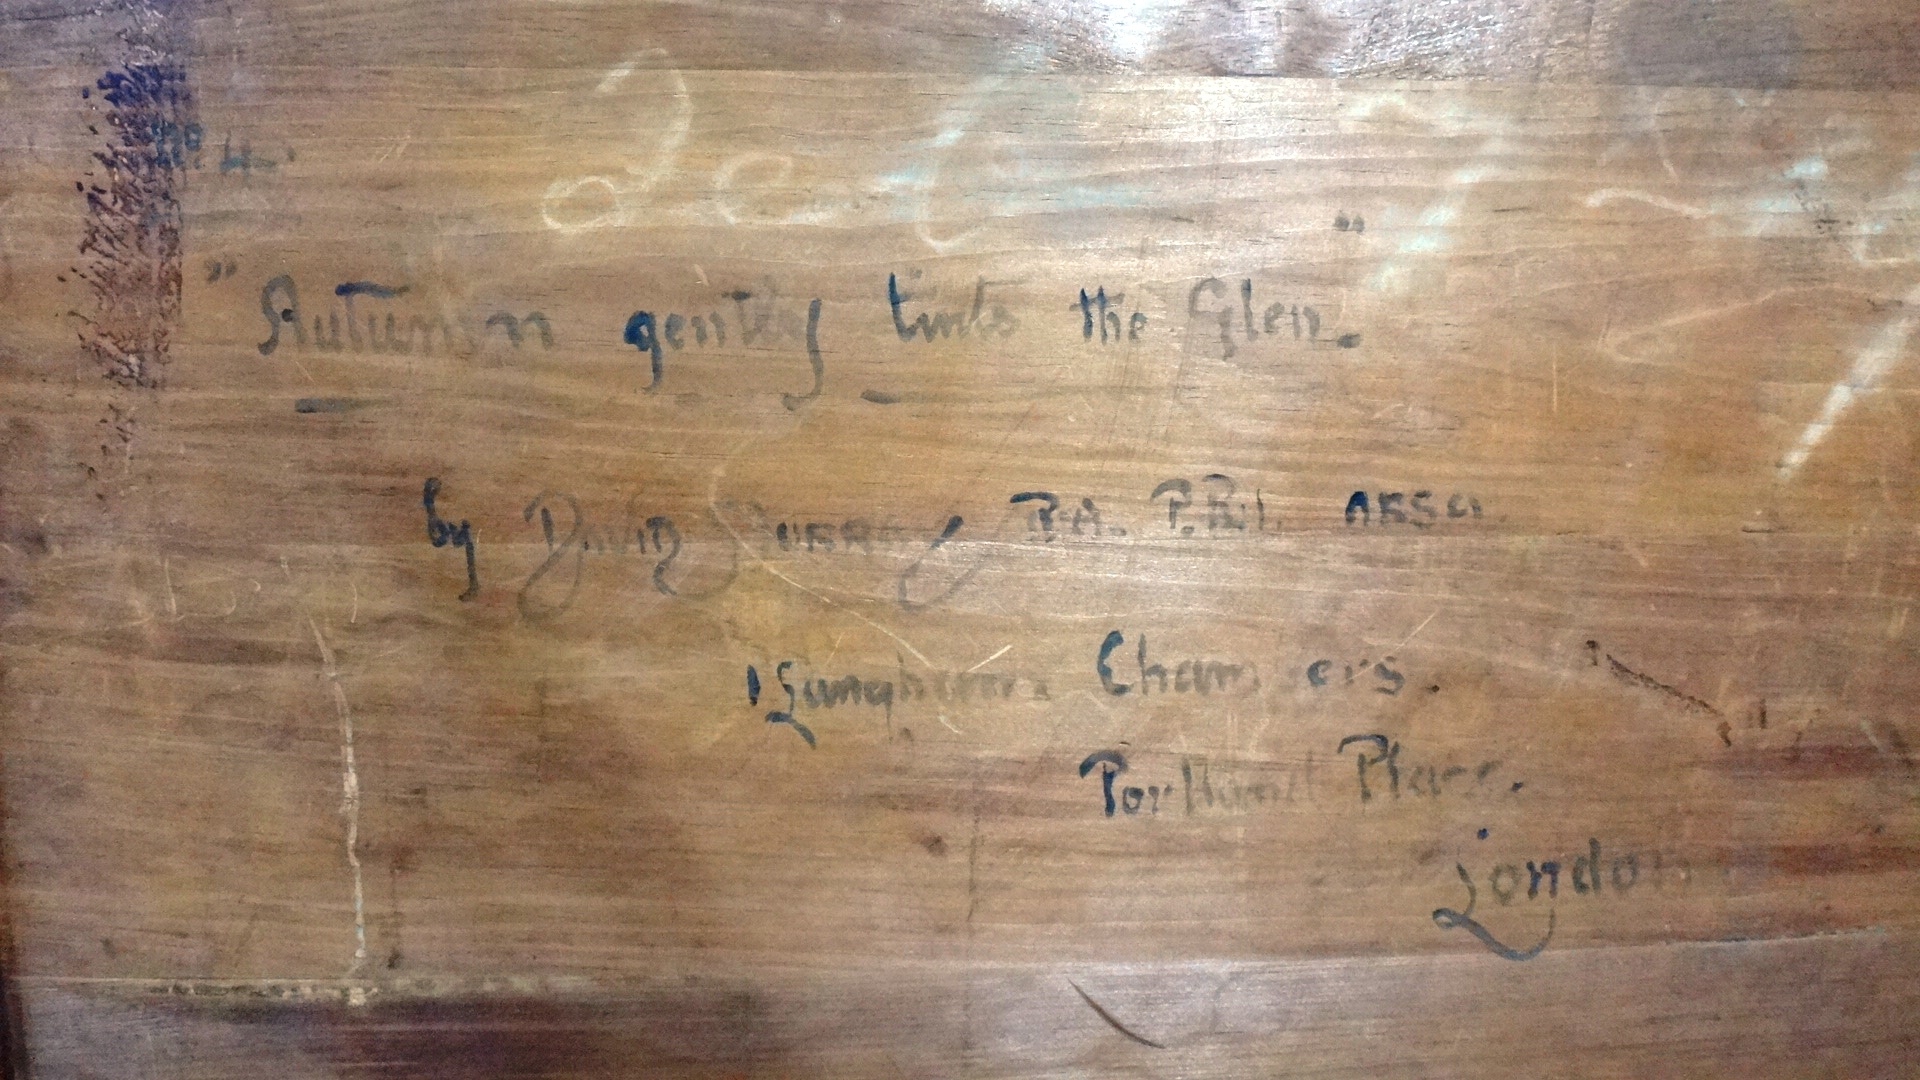 No 4.
"Autumn gently tints the Glen."
by David Murray R.A. P.R.I. ARSA
1 Langham Chambers.
Portland Place.
London